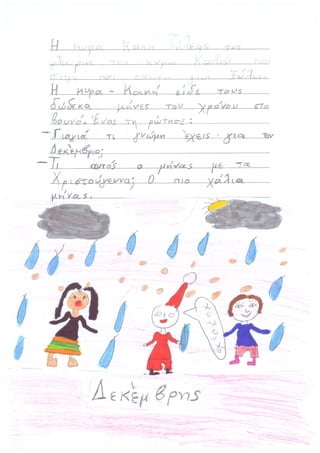 Η κυρα Κακή
Η κυρα - Κακή είδε τους
δώδεκα μήνες του χρόνου στο
βουνό. Ένας τη ρώτησε:
-Γιαγιά τι γνώμη έχεις για τον
Δεκέμβριο;
-Τι αυτός ο μήνας με τα
Χριστούγεννα; Ο πιο χάλια
μήνας.
χοχοχο
Δεκέμβρης